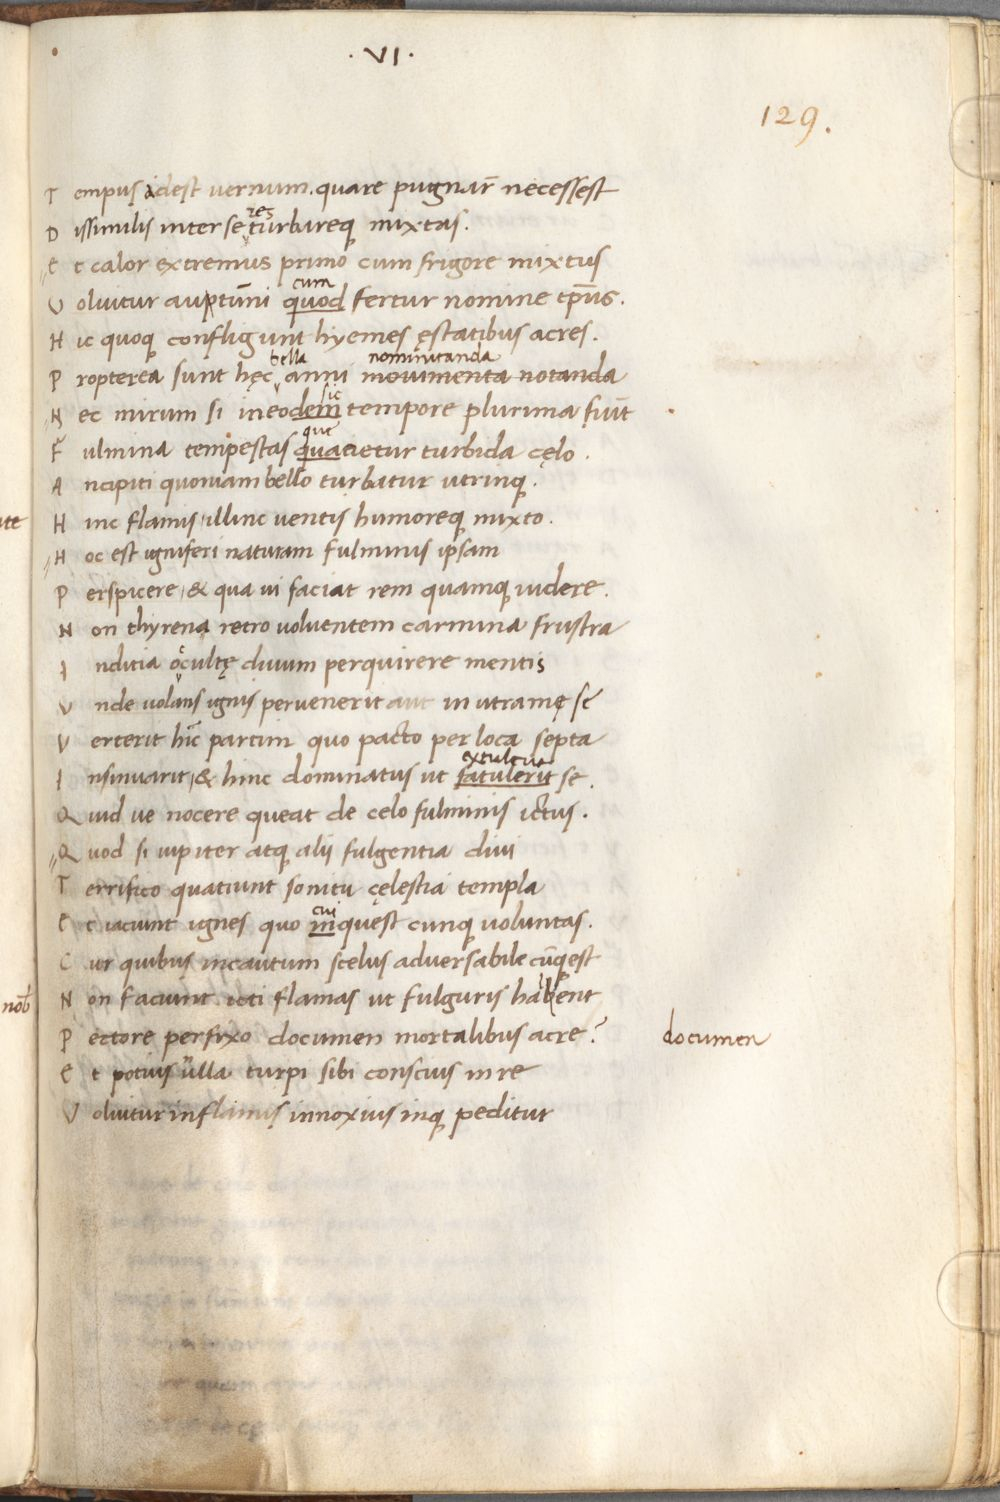 · VI ·
129.
T empus adest vernum. quare pugnar̄ necessest
res
D issimilis inter se turbareq; mixtas.
E t calor extremus primo cum frigore mixtus
cum
V oluitur auptūni quod fertur nomine tp̄us.
H ic quoq; confligunt hyemes ęstatibus acres.
bella nominitanda
P ropterea sunt hęc anni movimenta notanda
sic
N ec mirum si in eodem tempore plurima fiūt
que
F ulmina tempestas quacietur turbida cęlo.
A ncipiti quoniam bello turbatur utrinq;.
H inc flamis, illinc ventis humoreq; mixto.
H oc est igniferi naturam fulminis ipsam
P erspicere, & qua vi faciat rem quamq; videre.
N on thyrena retro voluentem carmina frustra
I nditia ocultę divum perquirere mentis
V nde volans ignis pervenerit aut in utramę se
V erterit hīc partim quo pacto per loca septa
extulerit
I nsinuarit, & hinc dominatus ut fatulerit se.
Q uid ve nocere queat de celo fulminis ictus.
Q uod si iupiter atq; alii fulgentia divi
T errifico quatiunt sonitu cęlestia templa
cui
E t iaciunt ignes quo inquęst cunq; voluntas.
C ur quibus incautum scelus adversabile cūq; est
N on faciunt icti flamas ut fulguris halent
P ectore perfixo documen mortalibus acre?
documen
E t potius nulla turpi sibi conscius in re
V oluitur in flamis innoxius inq; peditur